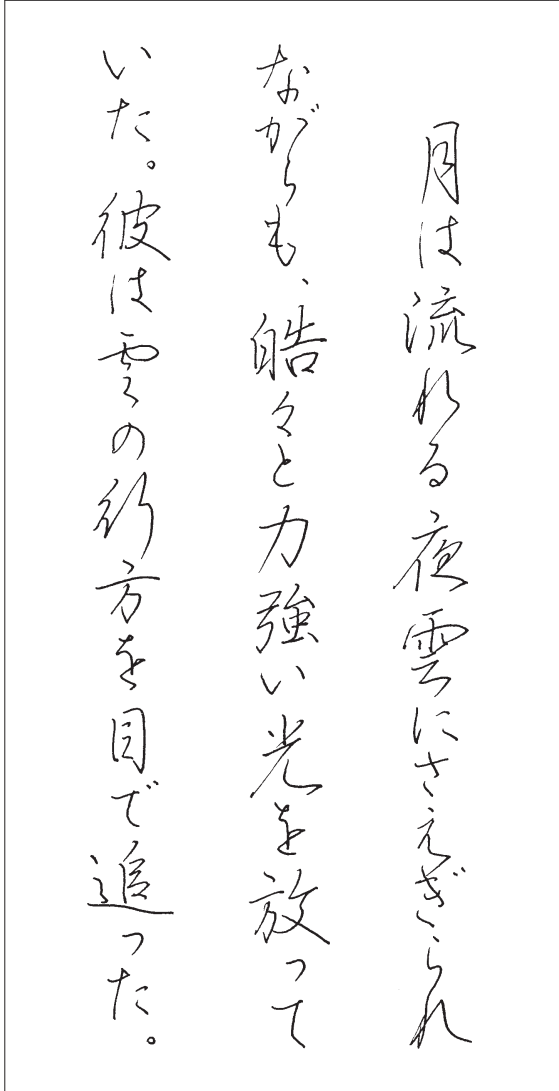 月は流れる夜雲にさえぎられ
ながらも、皓々と力強い光を放って
いた。彼は雲の行方を目で追った。